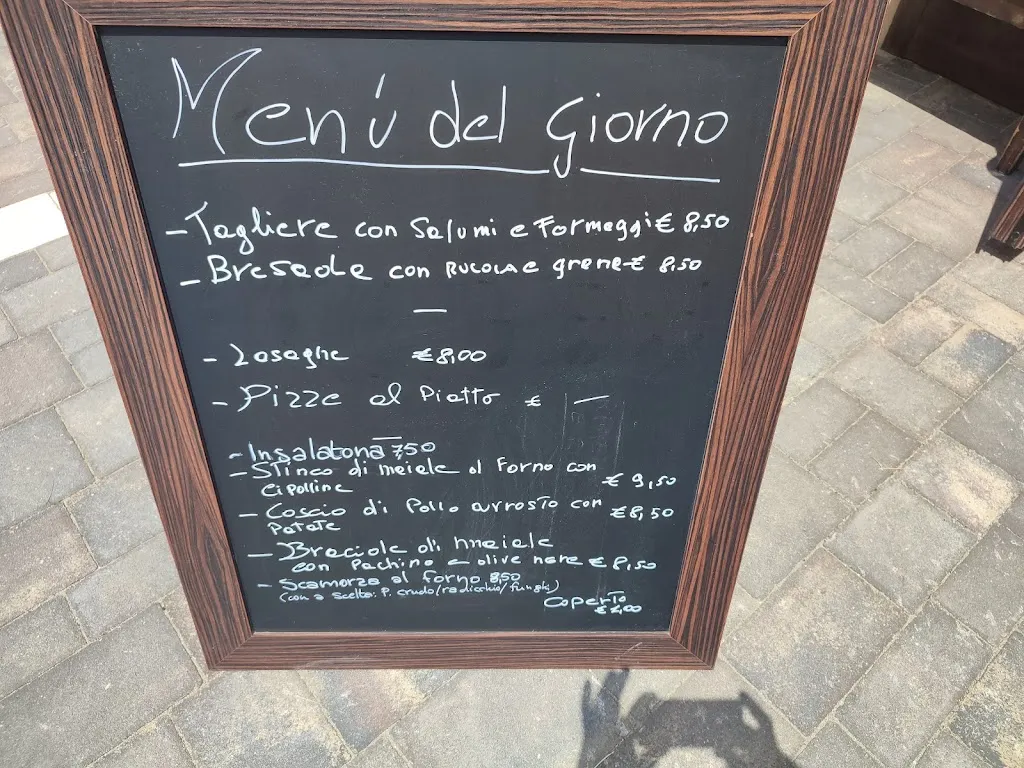 Menú del giorno
- Tagliere con Salumi e Formaggi € 8,50
- Bresaola con RUCOLA e grana € 8,50
—
- Lasaghe €8,00
- Pizza al Piatto € —
—
- Insalatona 7,50
- Stinco di maiale al Forno con
cipolline € 9,50
- Coscio di Pollo arrosto con
patate €8,50
- Braciola di maiale
con Pachino e olive nere € 8,50
- Scamorza al forno 8,50
(con a scelta: P. crudo/radicchio/funghi)
Coperto
€ 2,00